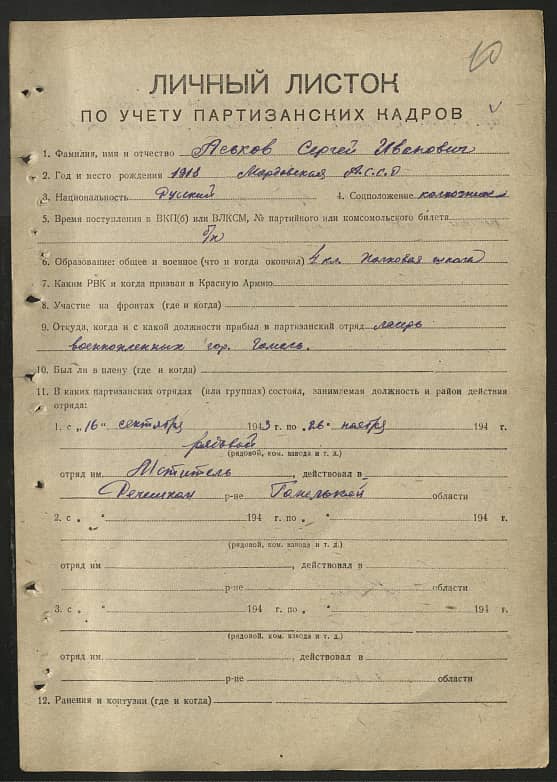 10
ЛИЧНЫЙ ЛИСТОК
ПО УЧЕТУ ПАРТИЗАНСКИХ КАДРОВ
1. Фамилия, имя и отчество Аськов Сергей Иванович
2. Год и место рождения 1918 Мордовская А.С.С.Р
3. Национальность Русский 4. Соцположение колхозник
5. Время поступления в ВКП(б) или ВЛКСМ, № партийного или комсомольского билета
б/п
6. Образование: общее и военное (что и когда окончил) 4 кл. школа
7. Каким РВК и когда призван в Красную Армию
8. Участие на фронтах (где и когда)
9. Откуда, когда и с какой должности прибыл в партизанский отряд лагерь
военнопленных гор. Гомель.
10. Был ли в плену (где и когда)
11. В каких партизанских отрядах (или группах) состоял, занимаемая должность и район действия
отряда:
1. с „16" сентября 1943 г. по „26" ноября 194 г.
рядовой
(рядовой, ком. взвода и т. д.)
отряд им. Мститель, действовал в
Речицком р-не Гомельской области
2. с „ " 194 г. по „ " 194 г.
(рядовой, ком. взвода и т. д.)
отряд им. , действовал в
р-не области
3. с „ " 194 г. по „ " 194 г.
(рядовой, ком. взвода и т. д.)
отряд им. , действовал в
р-не области
12. Ранения и контузии (где и когда)